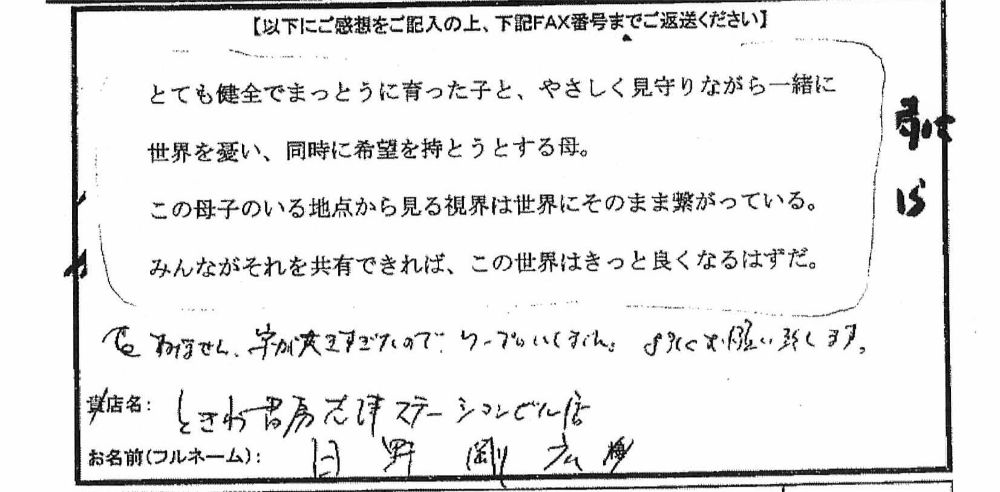 【以下にご感想をご記入の上、下記FAX番号までご返送ください】
とても健全でまっとうに育った子と、やさしく見守りながら一緒に
世界を憂い、同時に希望を持とうとする母。
この母子のいる地点から見る視界は世界にそのまま繋がっている。
みんながそれを共有できれば、この世界はきっと良くなるはずだ。
すみません、字が大きすぎたので、ワープロいくません。よろしくお願い致します。
貴店名: ときわ書房志津ステーションビル店
お名前(フルネーム): 日野剛広